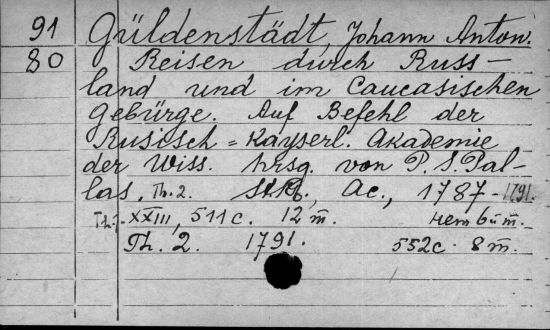 91 Güldenstädt, Johann Anton.
80 Reisen durch Russ-
land und im Caucasischen
Gebürge. Auf Befehl der
Rusisch=Kayserl. Akademie
der Wiss. hrsg. von P. S. Pal-
las. Th. 2. StPb., Ac., 1787-1791.
Th. 1- XXIII, 511 c. 12 т. нет 6й т.
Th. 2. 1791. 552 c. 8 т.